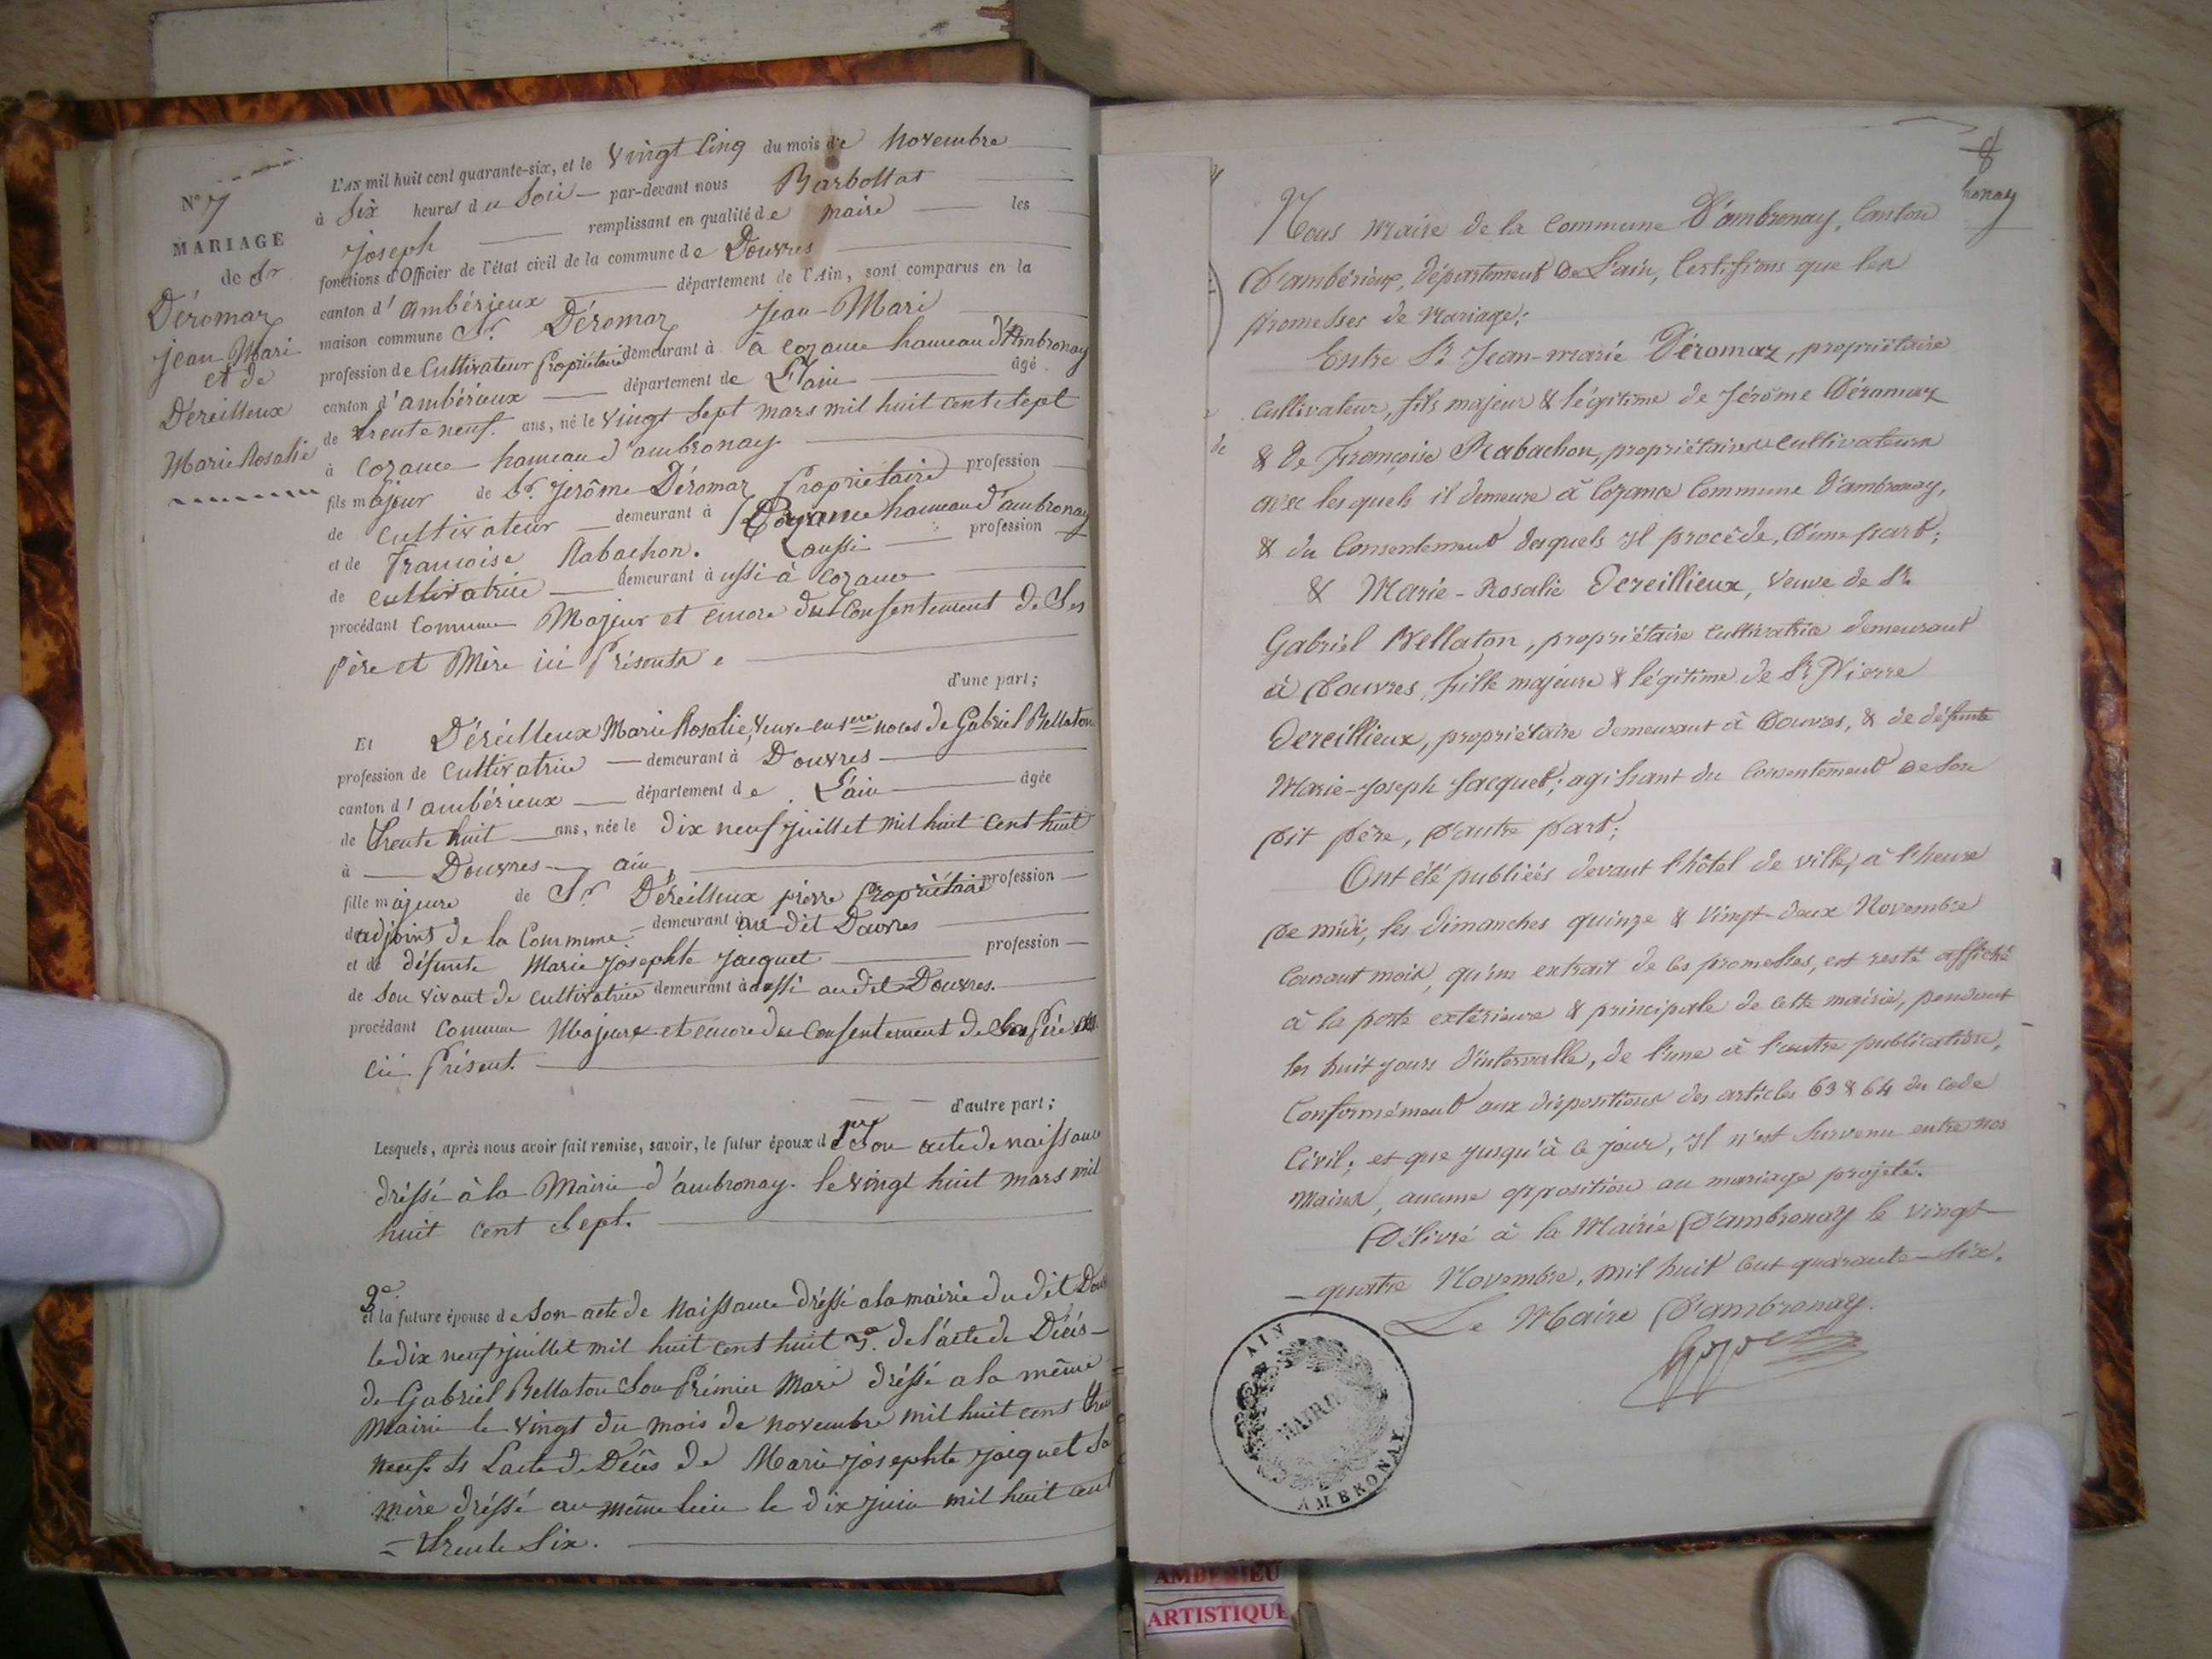 N° 7
MARIAGE
de Sr
Déromaz
Jean Mari
et de
Déreilleux
Marie Rosalie
L'AN mil huit cent quarante-six, et le Vingt Cinq du mois de Novembre
à Six heures du Soir par-devant nous Barbollat
Joseph remplissant en qualité de maire les
fonctions d'Officier de l'état civil de la commune de Douvres
canton d'Ambérieux département de l'Ain, sont comparus en la
maison commune Sr. Déromaz Jean-Mari
profession de Cultivateur Propriétaire demeurant à à Cozance hameau d'Ambronay
canton d'ambérieux département de L'ain âgé
de trente neuf ans, né le Vingt Sept mars mil huit cent Sept
à Cozance hameau d'ambronay
fils majeur de Sr. Jerôme Déromaz Propriétaire profession
de Cultivateur demeurant à Cozance hameau d'ambronay
et de Francoise Rabachon. aussi profession
de cultivatrice demeurant à ussi à Cozance
procédant Comme Majeur et encore du Consentement de Ses
père et Mère ici Présents
d'une part;
Et Déréilleux Marie Rosalie, Veuve en 1ere noces de Gabriel Bellaton
profession de Cultivatrice demeurant à Douvres
canton d'ambérieux département de L'ain âgée
de trente huit ans, née le dix neuf juillet mil huit Cent huit
à Douvres ain
fille majeure de Sr. Déreilleux pierre Propriétaire profession
adjoint de la Commune demeurant au dit Douvres
et de défunte Marie Josephte Jacquet profession
de Son vivant de Cultivatrice demeurant à aussi au dit Douvres.
procédant Comme Majeure et encore du Consentement de Son Père
ici Présent.
d'autre part;
Lesquels, après nous avoir fait remise, savoir, le futur époux d 1er Son acte de naissance
dréssé à la Mairie d'ambronay. le Vingt huit mars mil
huit cent Sept.
2e
et la future épouse de Son acte de Naissance dréssé a la mairie du dit Douv
le dix neuf juillet mil huit cent huit 3e. de l'acte de Décès
de Gabriel Bellaton Son Prémier Mari dréssé a la même
Mairie le vingt du mois de novembre mil huit cent tren
neuf. 4e L'acte de Décès de Marie Josephte Jacquet Sa
mère dréssé au même lieu le dix juin mil huit cent
trente Six.
8
bonay
Nous Maire de la Commune D'ambronay, Canton
D'ambérieux, Département De L'ain, Certifions que les
promesses de Mariage;
Entre Sr. Jean-marie Déromaz, propriétaire
Cultivateur, fils majeur & légitime de Jérôme Déromaz
& de Françoise Rabachon, propriétaires Cultivateurs
avec lesquels il demeure à Cozance Commune D'ambronay,
& du Consentement desquels Il procède, D'une part;
& Marie-Rosalie Dereillieux, Veuve de Sr.
Gabriel Bellaton, propriétaire Cultivatrice demeurant
à Douvres, fille majeure & légitime de Sr. Pierre
Dereillieux, propriétaire demeurant à Douvres, & de défunte
Marie-Joseph Jacquet; agissant du Consentement de Son
Dit Père, D'autre part;
Ont été publiées devant l'hôtel de ville, à l'heure
De midi, les dimanches quinze & Vingt-deux Novembre
Courant mois, qu'un extrait de Ces promesses, est resté affiché
à la porte extérieure & principale de Cette mairie, pendant
les huit jours d'intervalle, de l'une à l'autre publication,
Conformément aux dispositions des articles 63 & 64 du Code
Civil; et que jusqu'à Ce jour, Il n'est Survenu entre nos
Mains, aucune opposition au mariage projeté.
Délivré à la Mairie D'ambronay le Vingt
quatre Novembre, Mil huit Cent quarante-Six.
Le Maire D'ambronay.
AIN
MAIRIE
AMBRONAY
AMBERIEU
ARTISTIQUE